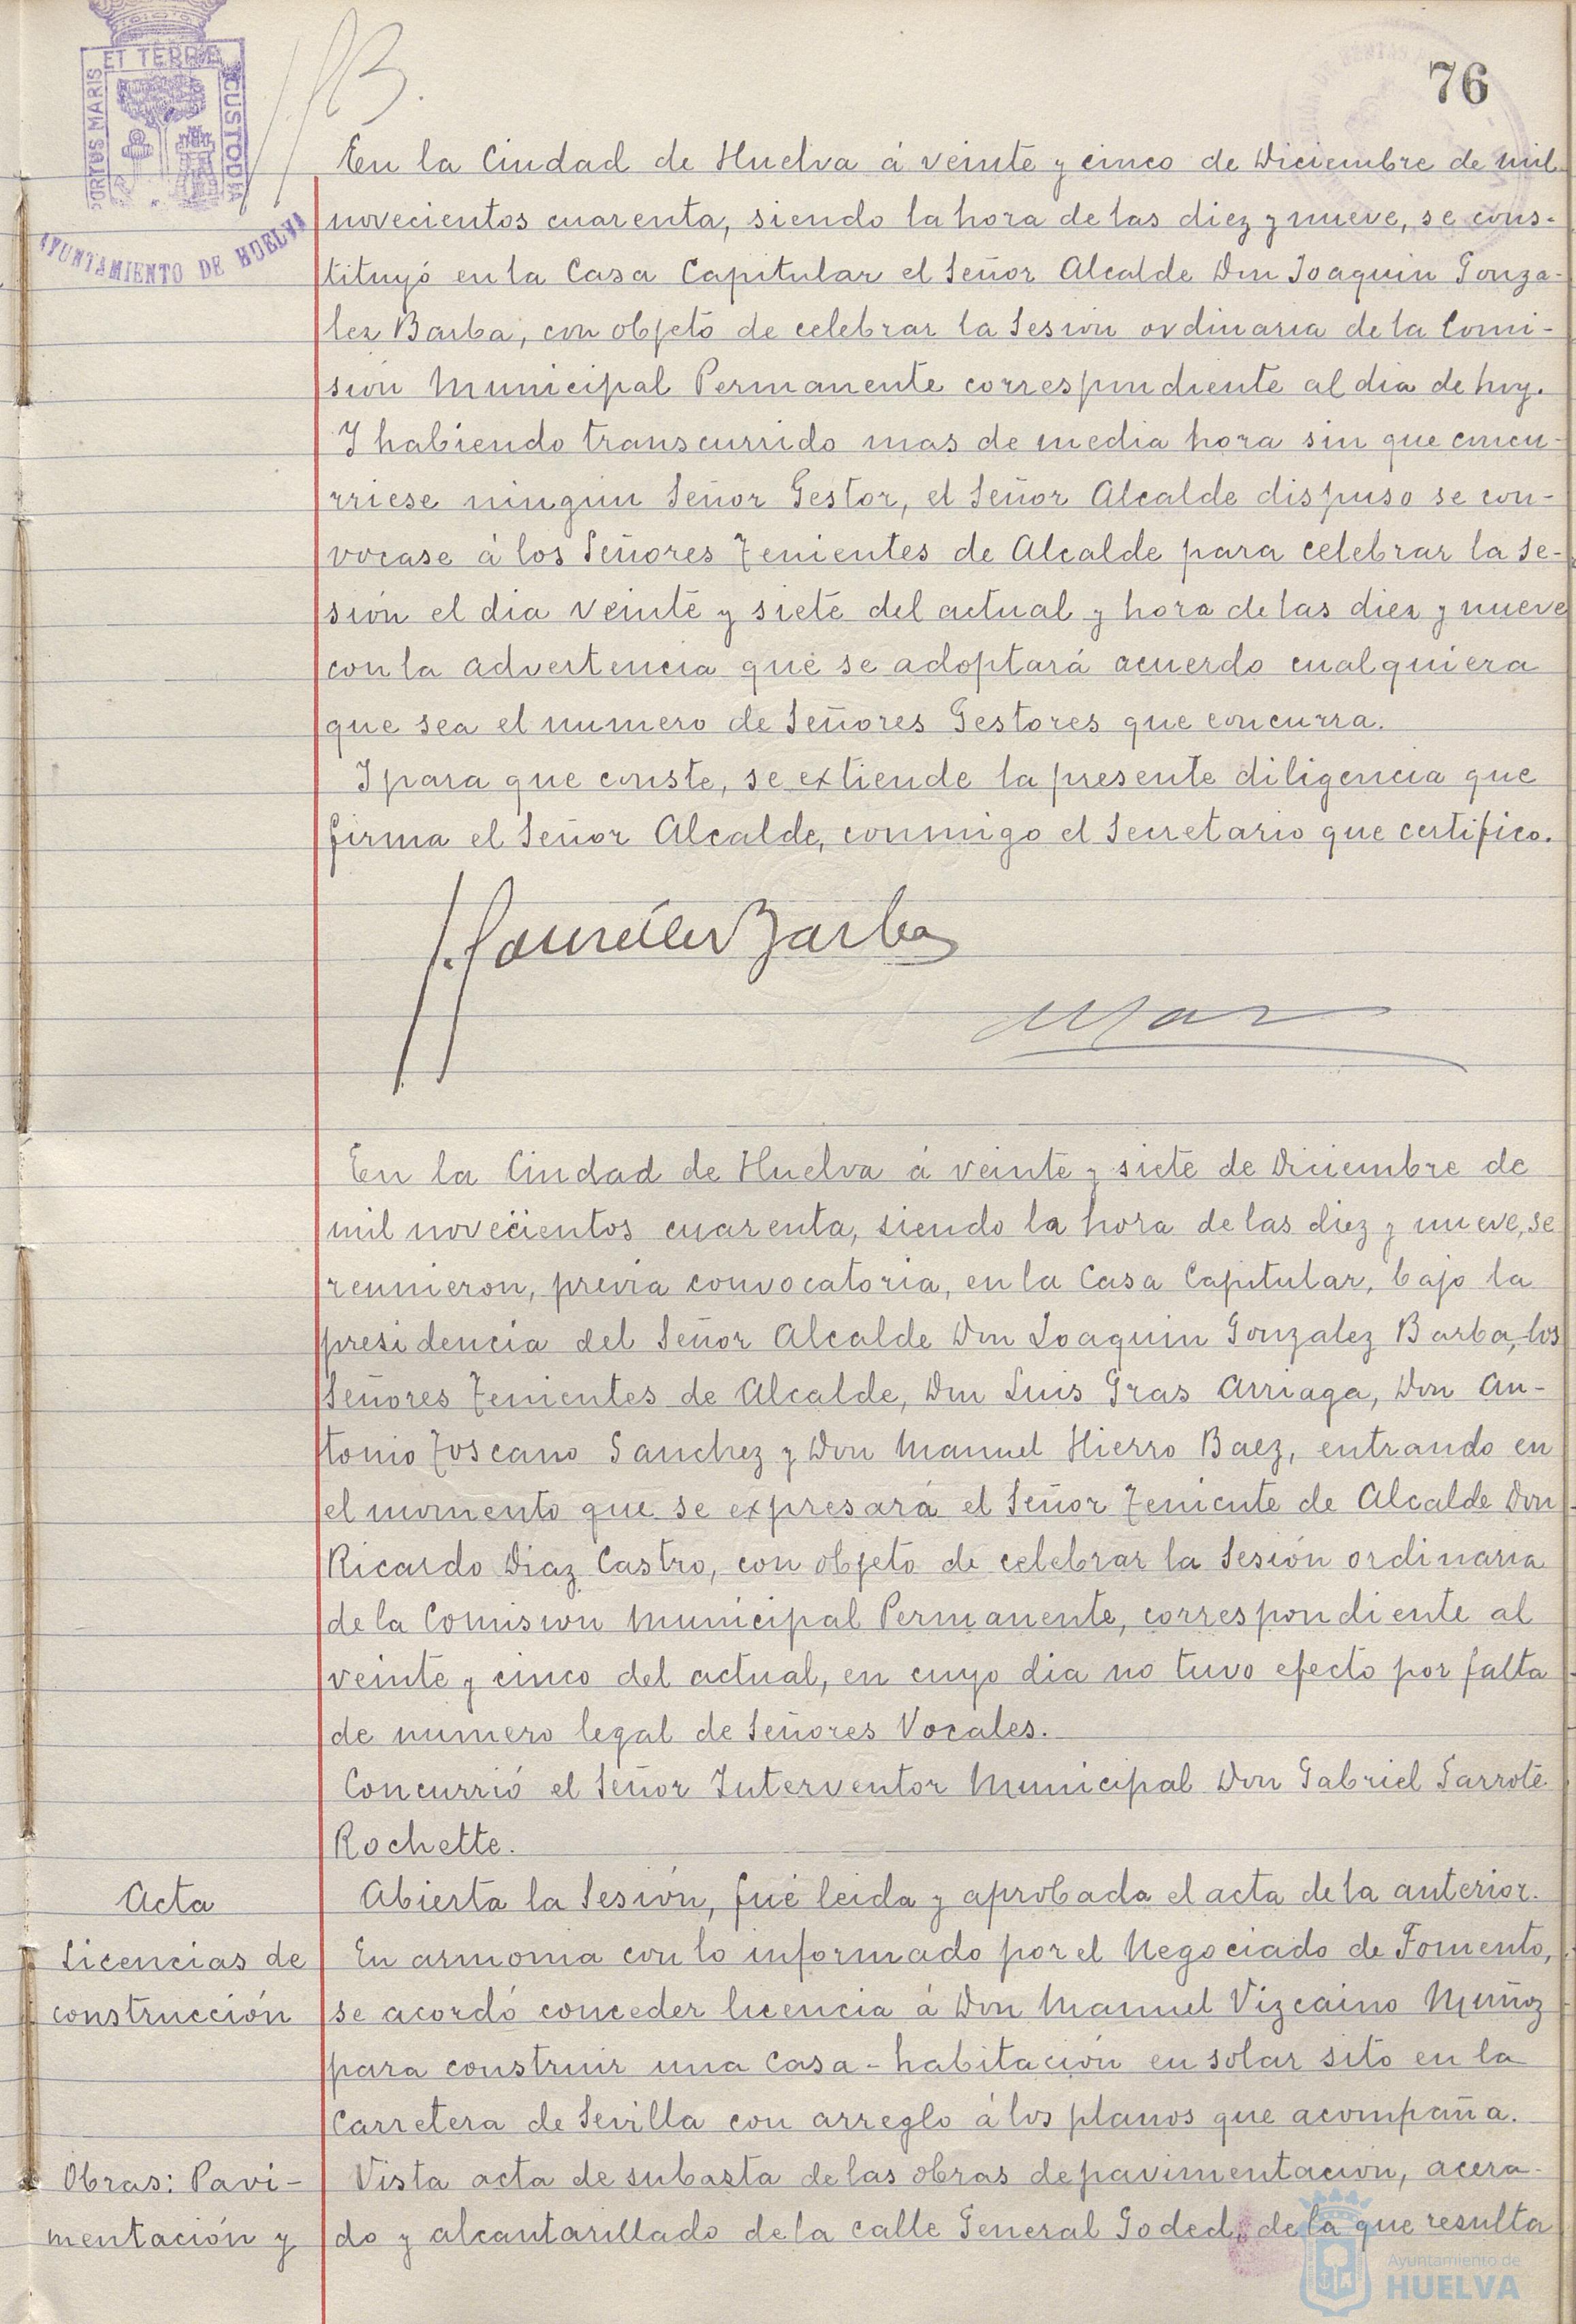 76
PORTUS MARIS ET TERRE CUSTODIA
AYUNTAMIENTO DE HUELVA
En la Ciudad de Huelva á veinte y cinco de Diciembre de mil
novecientos cuarenta, siendo la hora de las diez y nueve, se cons-
tituyó en la Casa Capitular el Señor Alcalde Don Joaquin Gonza-
lez Barba, con objeto de celebrar la Sesión ordinaria de la Comi-
sión Municipal Permanente correspondiente al dia de hoy.
Y habiendo transcurrido mas de media hora sin que concu-
rriese ningun Señor Gestor, el Señor Alcalde dispuso se con-
vocase á los Señores Tenientes de Alcalde para celebrar la Se-
sión el dia veinte y siete del actual y hora de las diez y nueve
con la advertencia que se adoptará acuerdo cualquiera
que sea el numero de Señores Gestores que concurra.
Y para que conste, se extiende la presente diligencia que
firma el Señor Alcalde, conmigo el Secretario que certifico.
J. González Barba
En la Ciudad de Huelva á veinte y siete de Diciembre de
mil novecientos cuarenta, siendo la hora de las diez y nueve, se
reunieron, previa convocatoria, en la Casa Capitular, bajo la
presidencia del Señor Alcalde Don Joaquin Gonzalez Barba, los
Señores Tenientes de Alcalde, Don Luis Gras Arriaga, Don An-
tonio Toscano Sanchez y Don Manuel Hierro Baez, entrando en
el momento que se expresará el Señor Teniente de Alcalde Don
Ricardo Diaz Castro, con objeto de celebrar la Sesión ordinaria
de la Comision Municipal Permanente, correspondiente al
veinte y cinco del actual, en cuyo dia no tuvo efecto por falta
de numero legal de Señores Vocales.
Concurrió el Señor Interventor Municipal Don Gabriel Garrote
Rochette.
Acta
Abierta la Sesión, fué leida y aprobada el acta de la anterior.
Licencias de
En armonia con lo informado por el Negociado de Fomento,
construcción
se acordó conceder licencia á Don Manuel Vizcaino Muñoz
para construir una casa-habitación en solar sito en la
Carretera de Sevilla con arreglo á los planos que acompaña.
Obras: Pavi-
Vista acta de subasta de las obras de pavimentación, acera-
mentación y
do y alcantarillado de la calle General Goded, de la que resulta
Ayuntamiento de
HUELVA